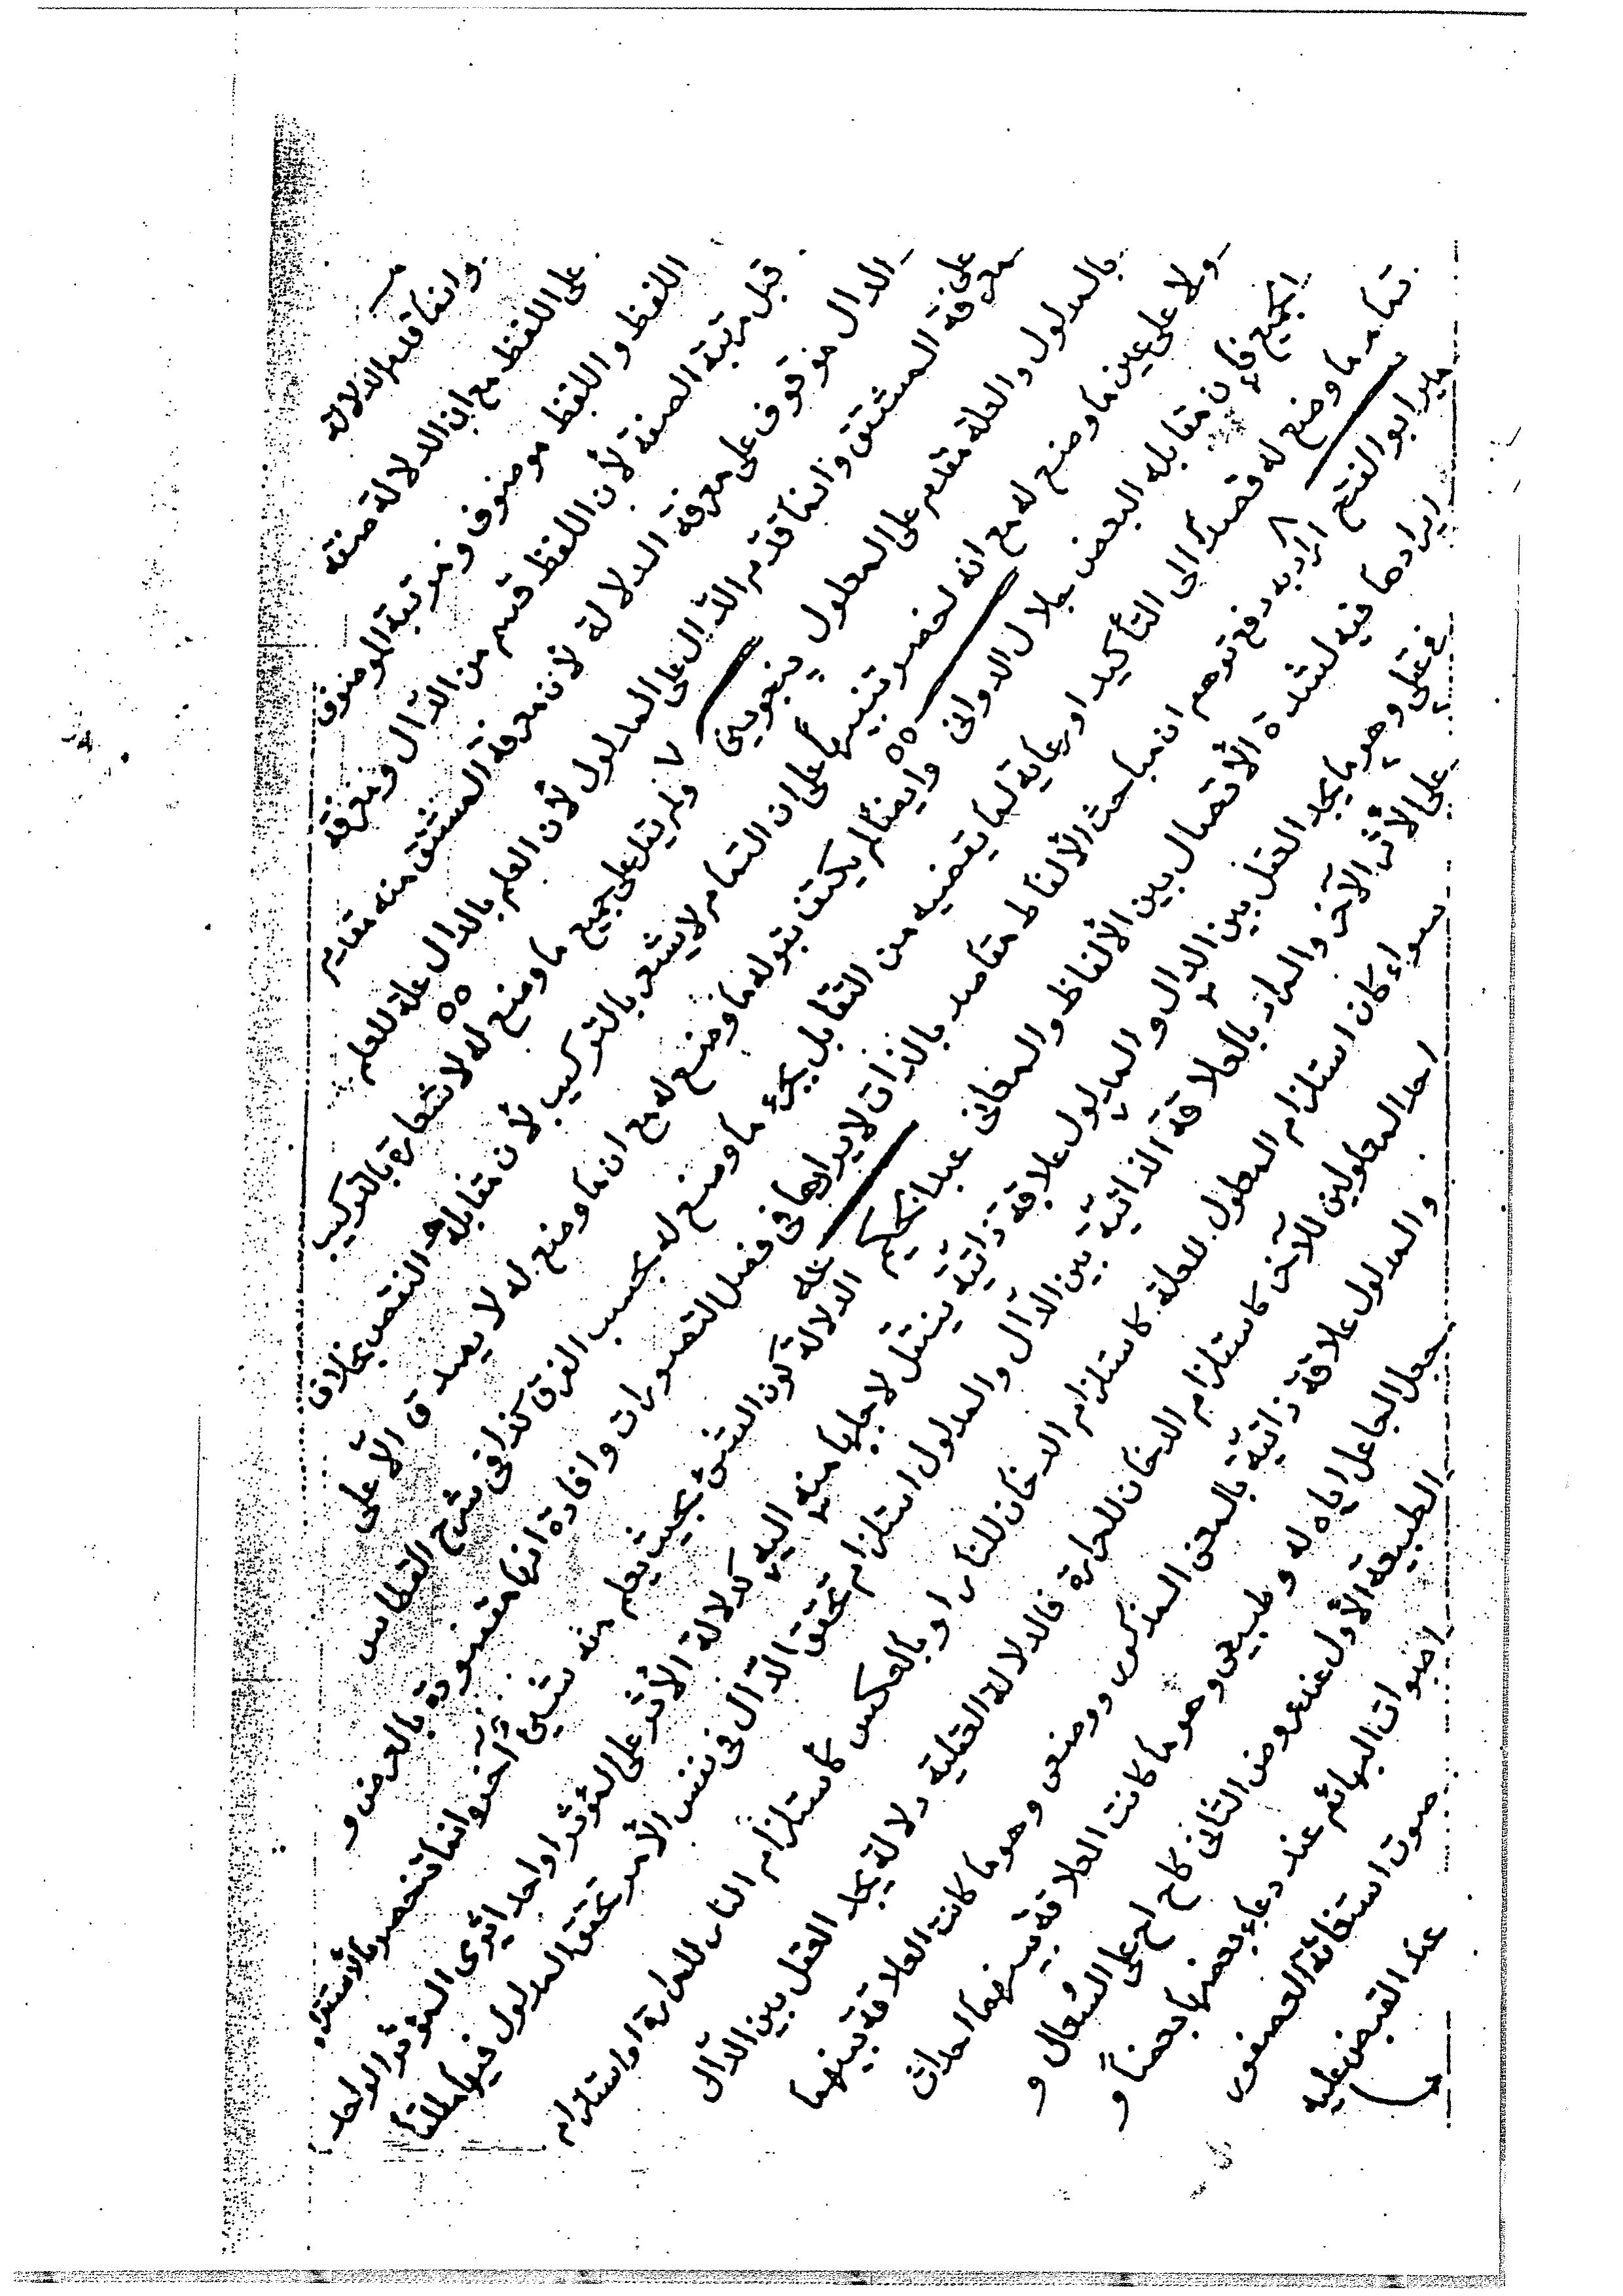 وانما قدم الدلالة
على اللفظ مع ان الدلالة صفة
اللفظ واللفظ موصوف ومرتبة الموصوف
قبل مرتبة الصفة لأن اللفظ قسم من الدال ومعرفة
الدال موقوف على معرفة الدلالة لأن معرفة المشتق منه مقدم
على معرفة المشتق وانما قدم الدال على المدلول لأن العلم بالدال علة للعلم
بالمدلول والعلة مقدم على المعلول ينجويني ٧ ولم يقل على جميع ما وضع له لاشعاره بالتركيب
ولا على عين ما وضع له مع انه اخصر تنبيها على ان التمام لا يشعر بالتركيب لأن مقابله النقص بخلاف
الجميع فإن مقابله البعض جلال الدواني وايضا لم يكتف بقوله ما وضع له مع ان ما وضع له لا يصدق الّا على
تمام ما وضع له قصدًا الى التأكيد او رعاية لما يقتضيه من التقابل بجزء ما وضع له بحسب العرف كذا في شرح القطاس
مير ابو الفتح ٨ اراد به دفع توهم ان مباحث الألفاظ مقاصد بالذات لايرادها في فصل التصورات وافادة انها مقصودة بالعرض و
ايرادها فيه لشدة الأتصال بين الألفاظ والمعاني عبد الحكيم عه الدلالة كون الشئ بحيث يعلم منه شئ آخر وانما تنحصر بالاستقراء
في عقلي وهو ما يجد العقل بين الدال والمدلول علاقة ذاتية ينتقل لاجلها منه اليه كدلالة الأثر على المؤثر او احد اثري المؤثر الواحد
على الأثر الآخر والمراد بالعلاقة الذاتية بين الدال والمدلول استلزام تحقق الدال في نفس الأمر تحقق المدلول فيها مطلقا
سواء كان استلزام المعلول للعلة كاستلزام الدخان للنار او بالعكس كاستلزام النار للحرارة او استلزام
احد المعلولين للآخر كاستلزام الدخان للحرارة فالدلالة العقلية دلالة يجد العقل بين الدال
والمدلول علاقة ذاتية بالمعنى المذكور ووضعي وهو ما كانت العلاقة بينهما
جعل الجاعل اياه له وطبيعي وهو ما كانت العلاقة بينهما احداث
الطبيعة الأول عند عروض الثاني كاح اح على السّعال و
اصوات البهائم عند دعاء بعضها بعضًا و
صوت استغاثة العصفور
عند القبض عليه